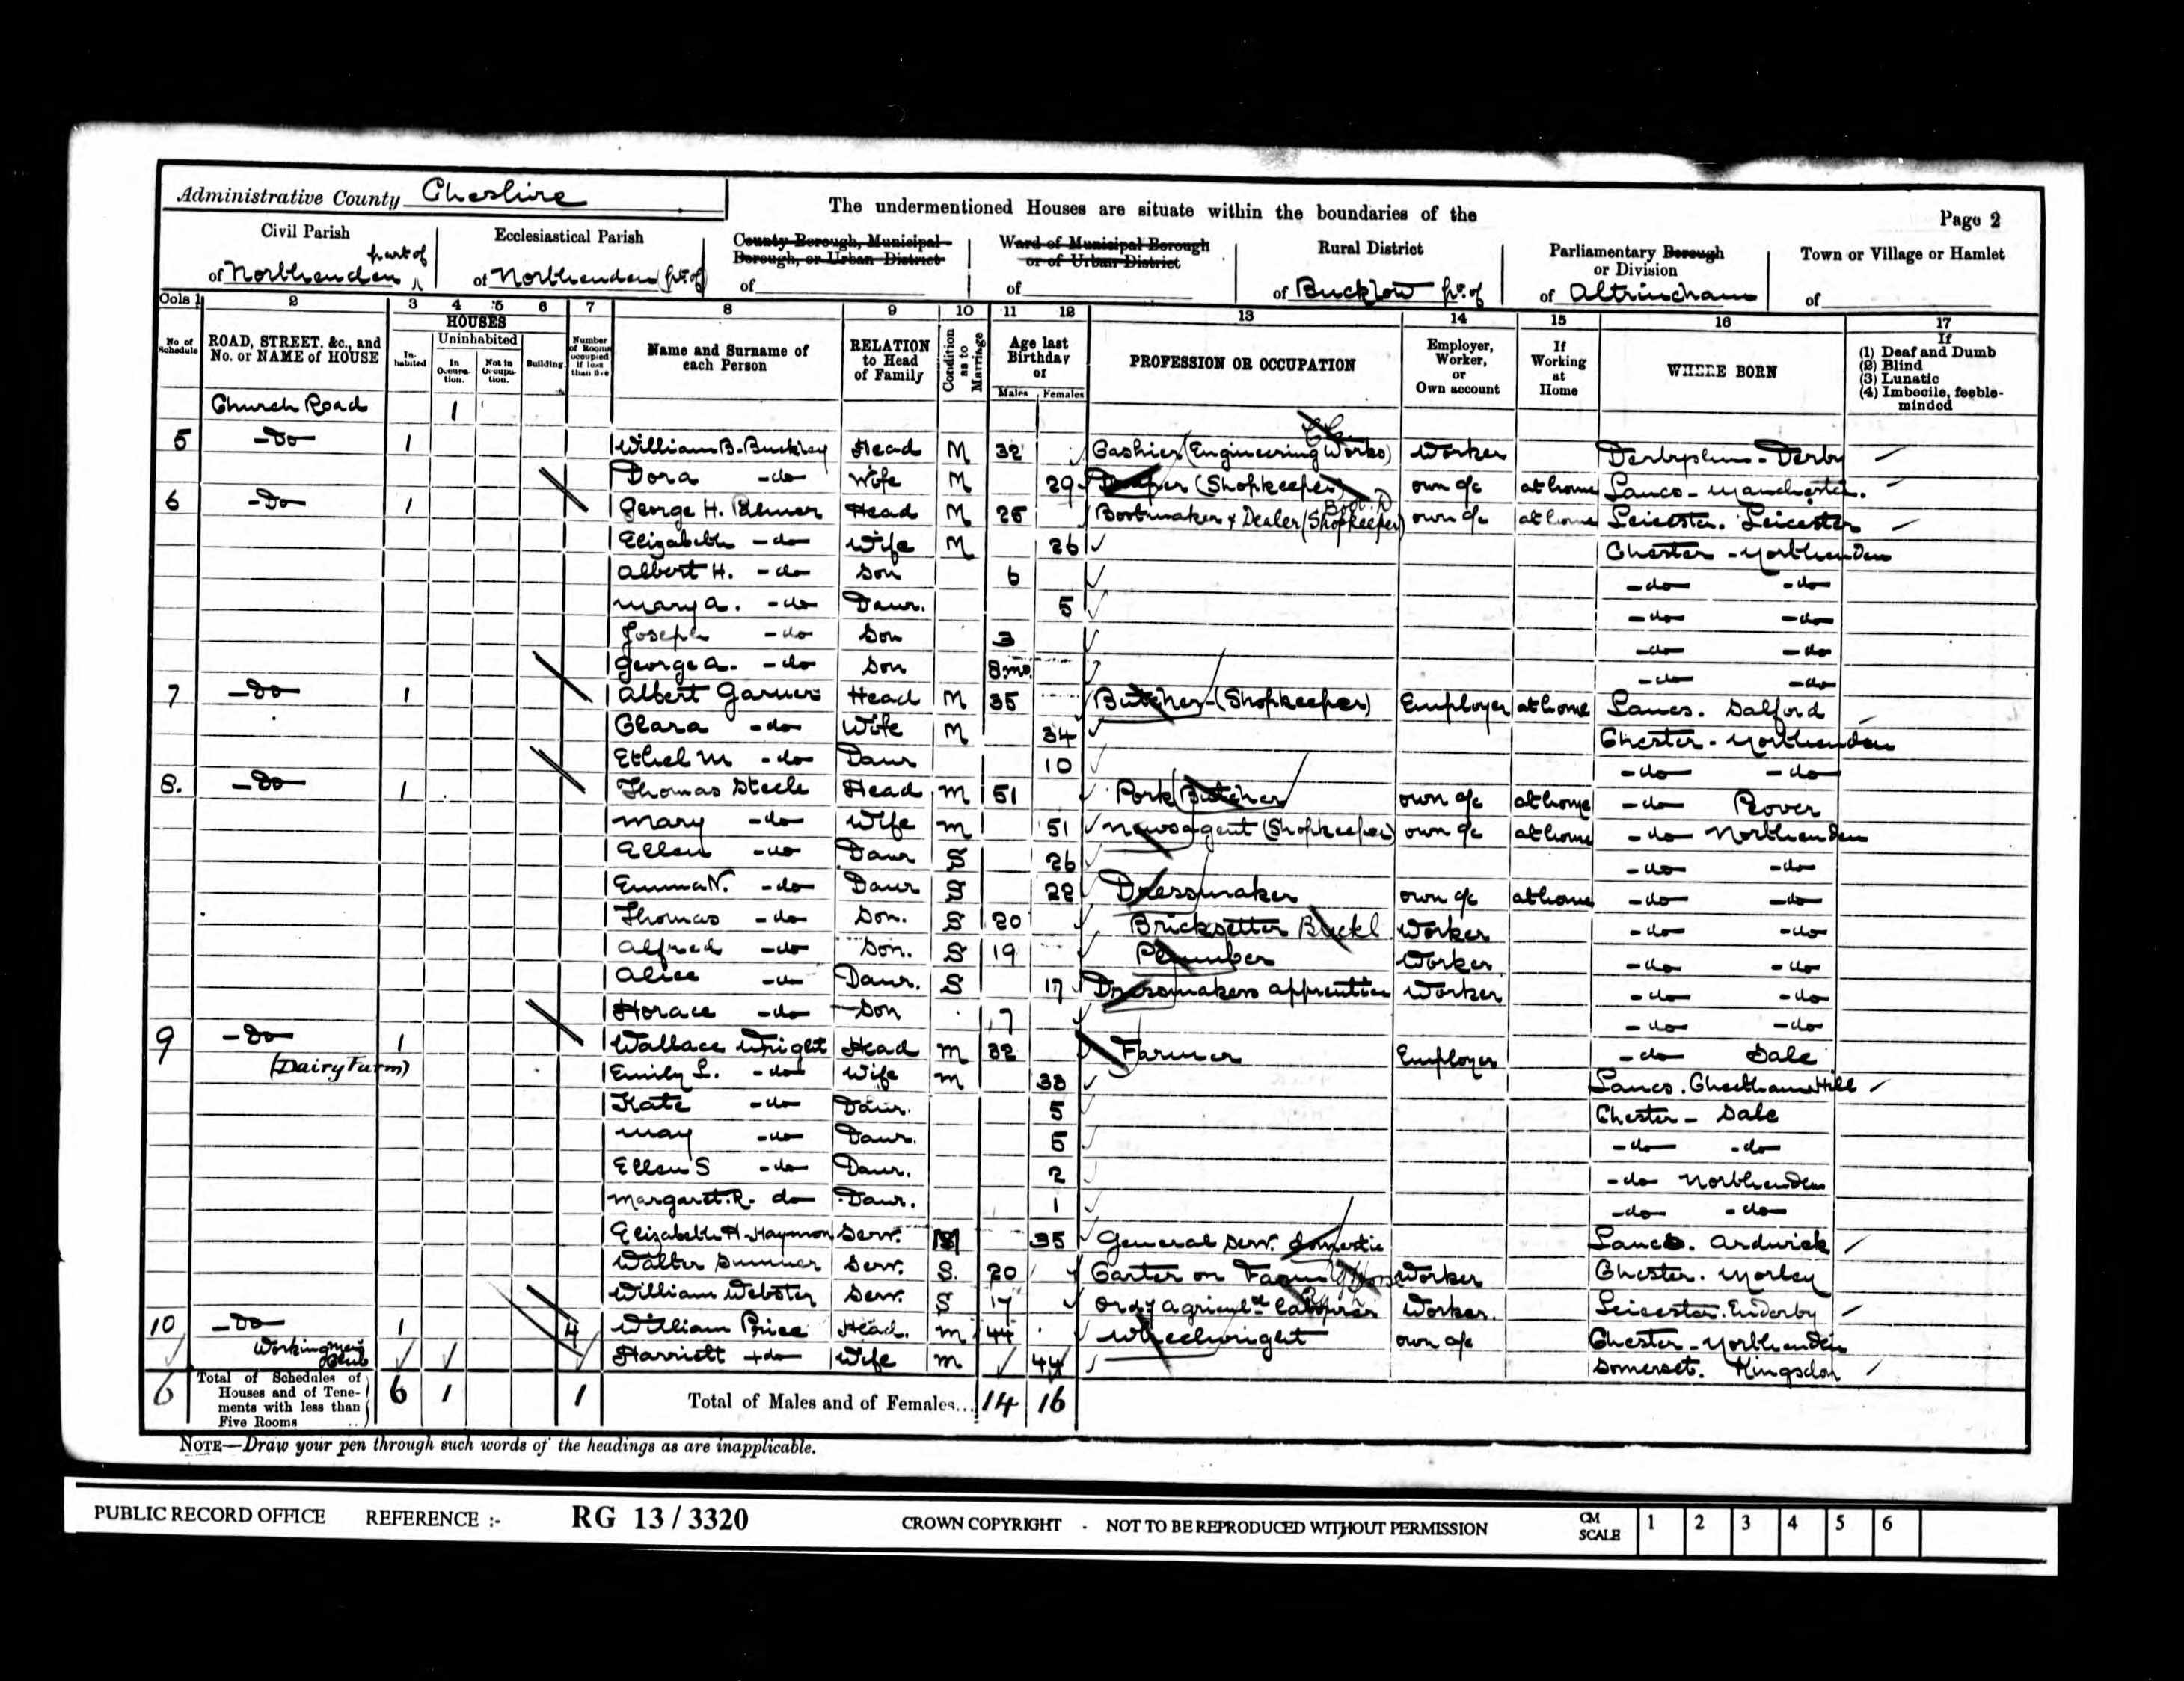 Administrative County Cheshire
The undermentioned Houses are situate within the boundaries of the
Page 2
Civil Parish
part of
of Northenden
Ecclesiastical Parish
of Northenden (pt. of)
County Borough, Municipal Borough, or Urban District
of
Ward of Municipal Borough or of Urban District
of
Rural District
of Bucklow pt. of
Parliamentary Borough or Division
of Altrincham
Town or Village or Hamlet
of
Cols 1 2 3 4 5 6 7 8 9 10 11 12 13 14 15 16 17
No of Schedule
ROAD, STREET, &c., and No. or NAME of HOUSE
HOUSES
Inhabited
Uninhabited
In Occupation.
Not in Occupation.
Building
Number of Rooms occupied if less than five
Name and Surname of each Person
RELATION to Head of Family
Condition as to Marriage
Age last Birthday of
Males Females
PROFESSION OR OCCUPATION
Employer, Worker, or Own account
If Working at Home
WHERE BORN
If
(1) Deaf and Dumb
(2) Blind
(3) Lunatic
(4) Imbecile, feeble-minded
Church Road 1
5 -Do- 1 William B. Buckley Head M 32 Cashier (Engineering Works) Worker Derbyshire - Derby
Dora -do- Wife M 29 Draper (Shopkeeper) own a/c at home Lancs - Manchester.
6 -Do- 1 George H. Head M 26 Bootmaker & Dealer (Shopkeeper) own a/c at home Leicester. Leicester
Elizabeth -do- Wife M 26 Chester - Northenden
Albert H. -do- Son 6 -do- -do-
Mary A. -do- Daur. 5 -do- -do-
Joseph -do- Son 3 -do- -do-
George A. -do- Son 8 mo. -do- -do-
7 -Do- 1 Albert Garner Head M 35 Butcher - (Shopkeeper) Employer at home Lancs. Salford
Clara -do- Wife M 34 Chester - Northenden
Ethel M -do- Daur 10 -do- -do-
8. -Do- 1 Thomas Steele Head M 51 Pork Butcher own a/c at home -do- Peover
Mary -do- Wife M 51 Newsagent (Shopkeeper) own a/c at home -do- Northenden
Ellen -do- Daur S 26 -do- -do-
Emma N. -do- Daur S 22 Dressmaker own a/c at home -do- -do-
Thomas -do- Son. S 20 Bricksetter Worker -do- -do-
Alfred -do- Son. S 19 Plumber Worker -do- -do-
Alice -do- Daur. S 17 Dressmakers apprentice Worker -do- -do-
Horace -do- Son 7 -do- -do-
9 -Do- 1 Wallace Wright Head M 32 Farmer Employer -do- Sale
(Dairy Farm) Emily L. -do- Wife M 33 Lancs. Cheetham Hill
Kate -do- Daur. 5 Chester - Sale
May -do- Daur. 5 -do- -do-
Ellen S -do- Daur. 2 -do- Northenden
Margaret. R. do Daur. 1 -do- -do-
Elizabeth H. Serv. 35 General Serv. domestic Lancs. Ardwick
Walter Sumner Serv. S. 20 Carter on Farm Worker Chester. Morley
William Webster Serv. S 17 Ordy agricul. labourer Worker. Leicester. Enderby
10 -Do- 1 4 William Price Head. M 44 Wheelwright own a/c Chester - Northenden
Working Men's Club Harriett -do Wife M 44 Somerset. Kingsdon
6 Total of Schedules of Houses and of Tenements with less than Five Rooms 6 1 1 Total of Males and of Females... 14 16
NOTE—Draw your pen through such words of the headings as are inapplicable.
PUBLIC RECORD OFFICE REFERENCE :- RG 13 / 3320 CROWN COPYRIGHT - NOT TO BE REPRODUCED WITHOUT PERMISSION CM SCALE 1 2 3 4 5 6